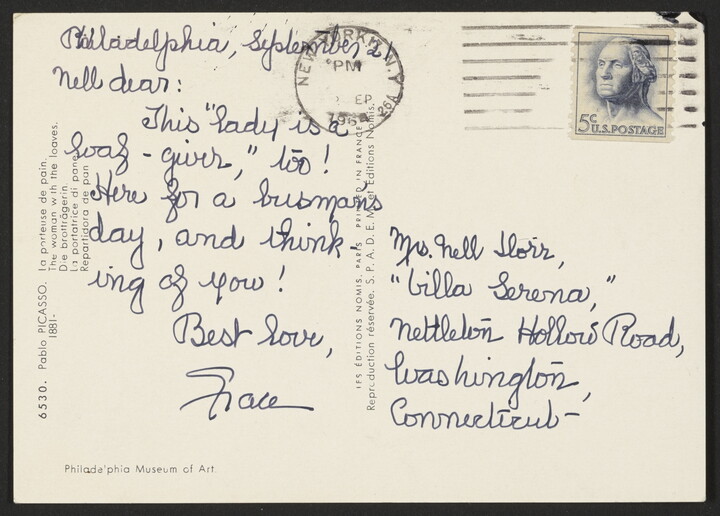 Philadelphia, September 21
Nell dear:
This "lady is a
loaf-giver," too!
Here for a busman's
day, and think-
ing of you!
Best love,
Grace
Mrs. Nell Dorr,
"Villa Serena,"
Nettleton Hollow Road,
Washington,
Connecticut-
NEW YORK, N.Y.
PM
SEP
26A
5c U.S. POSTAGE
6530. Pablo PICASSO. La porteuse de pain.
1881-
The woman with the loaves.
Die brotträgerin.
La portatrice di pane
Repartidora de pan
IFS ÉDITIONS NOMIS, PARIS PRINTED IN FRANCE
Reproduction réservée. S. P. A. D. E. M. et Editions Nomis.
Philadelphia Museum of Art.